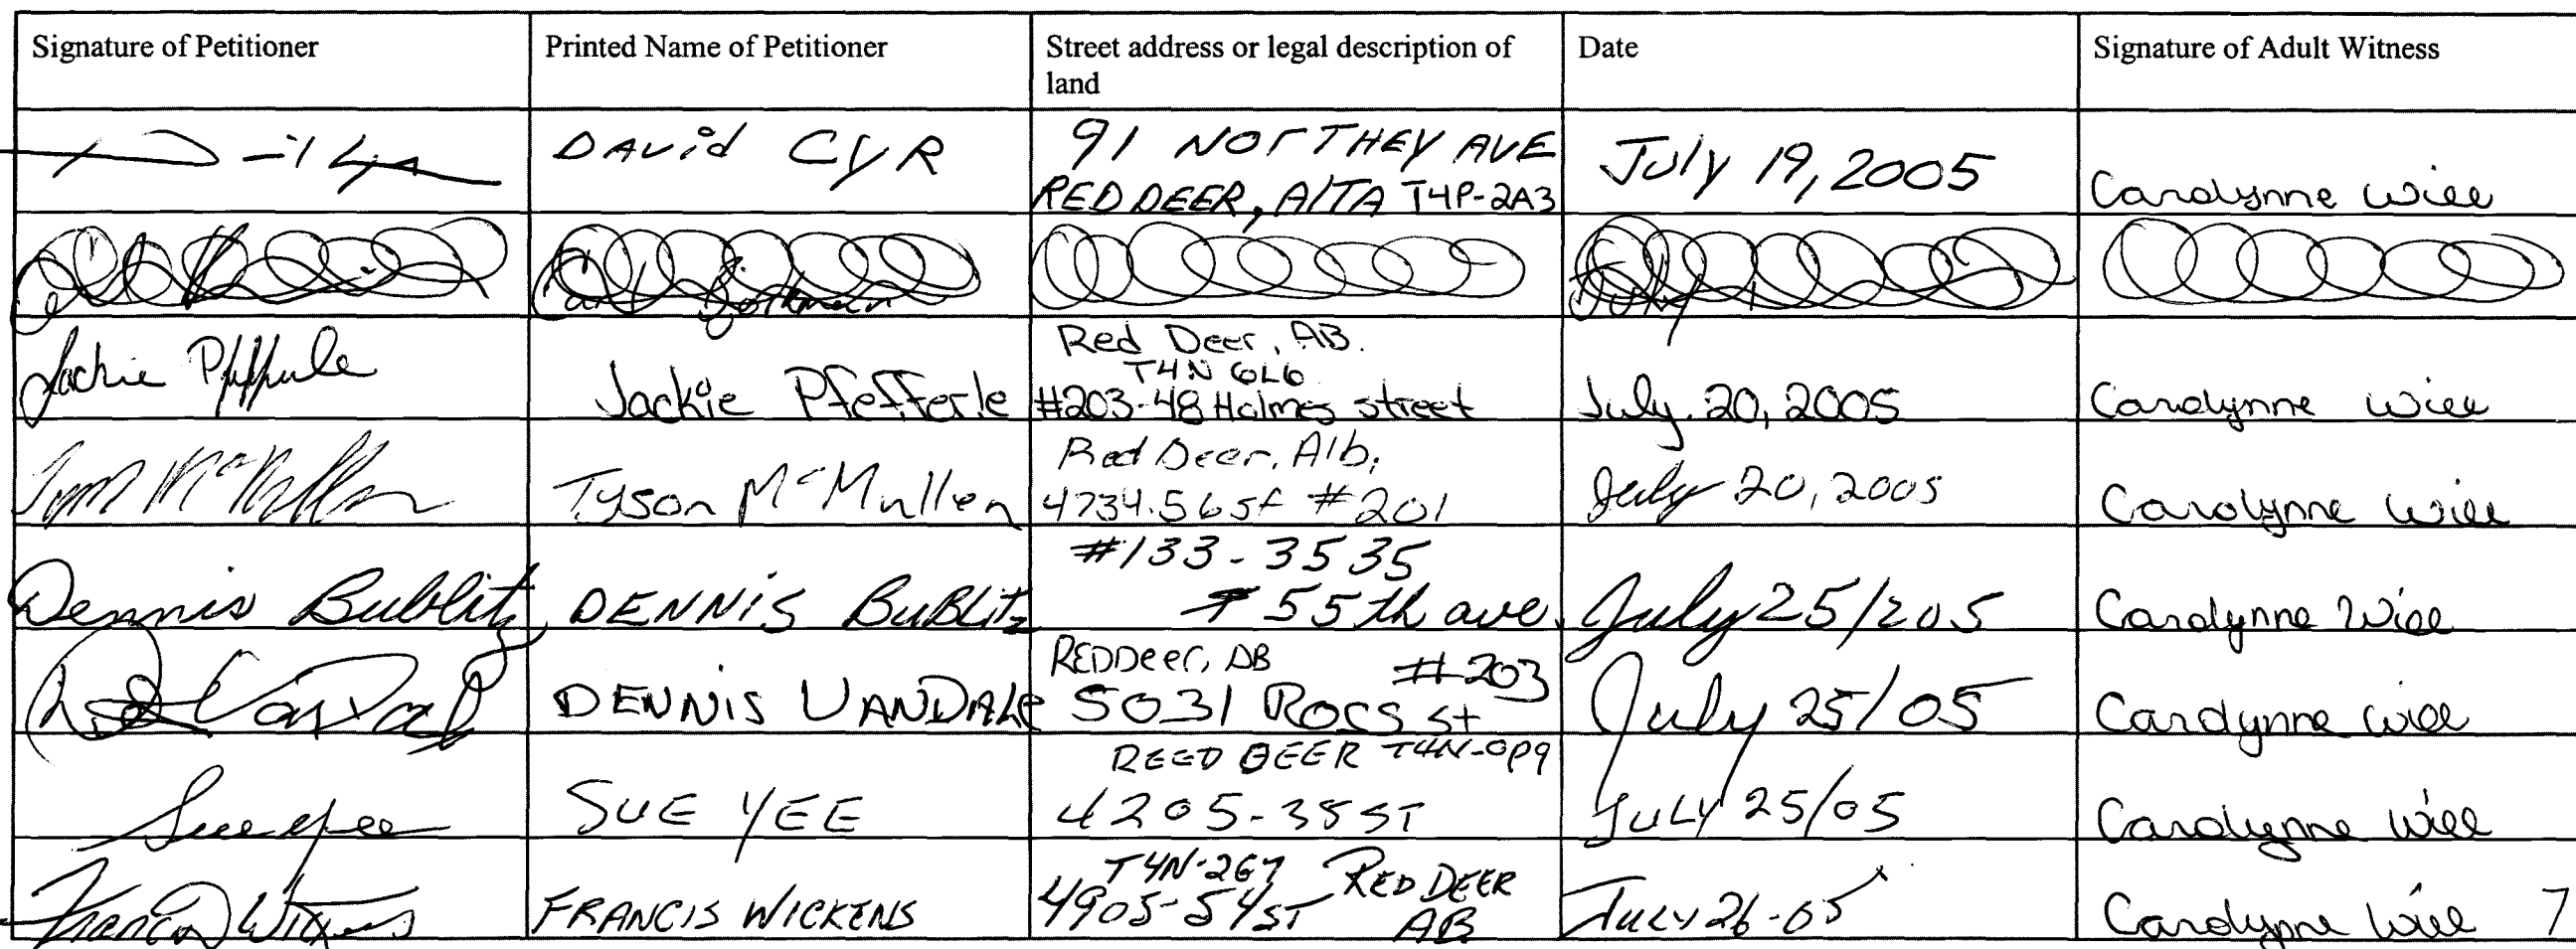 Signature of Petitioner
Printed Name of Petitioner
Street address or legal description of
land
Date
Signature of Adult Witness
DAVid CYR
91 NORTHEY AVE
RED DEER, AlTA T4P-2A3
July 19, 2005
Carolynne Will
July
Jackie Pfefferle
Jackie Pfefferle
Red Deer, AB.
T4N 6L6
#203-48 Holmes street
July 20, 2005
Carolynne Will
Tyson McMullen
Red Deer, Alb.
4734.56st #201
July 20, 2005
Carolynne Will
Dennis Bublitz
DENNIS BUBLitz
#133-3535
55th ave.
July 25/205
Carolynne Will
DENNIS VANDALE
REDDeer, AB #203
5031 ROSS St
July 25/05
Carolynne Will
Sue Yee
SUE YEE
REED DEER T4N-0P9
4205-38 ST
JULY 25/05
Carolynne Will
Francis Wickens
FRANCIS WICKENS
T4N-2G7 RED DEER
4905-54 ST AB
JULY 26-05
Carolynne Will 7